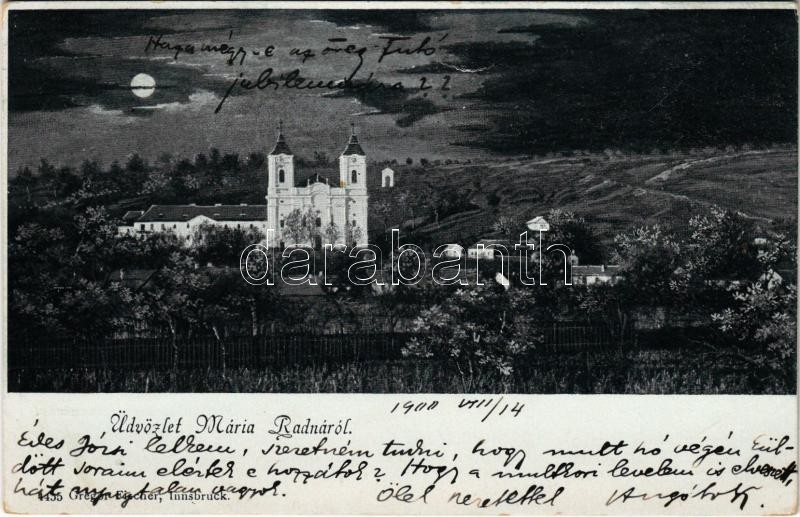 Haza mégy-e az öreg Futó
jubileumára ??
darabanth
Üdvözlet Mária Radnáról.
1900 VIII/14
Édes Józsi lelkem, szeretném tudni, hogy mult hó végén kül-
dött soraim elértek e hozzátok? Hogy a multkori levelem is elveszett,
hát nyugtalan vagyok. Ölel szeretettel
4455 Gregor Fischer, Innsbruck.